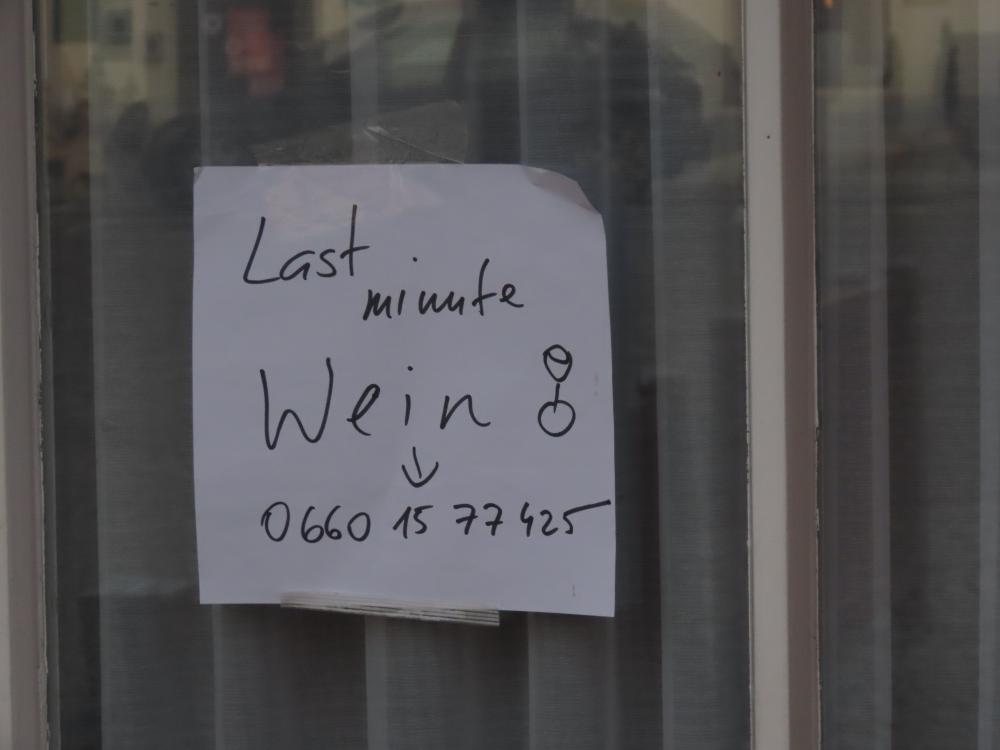 Last
minute
Wein
0660 15 77 425